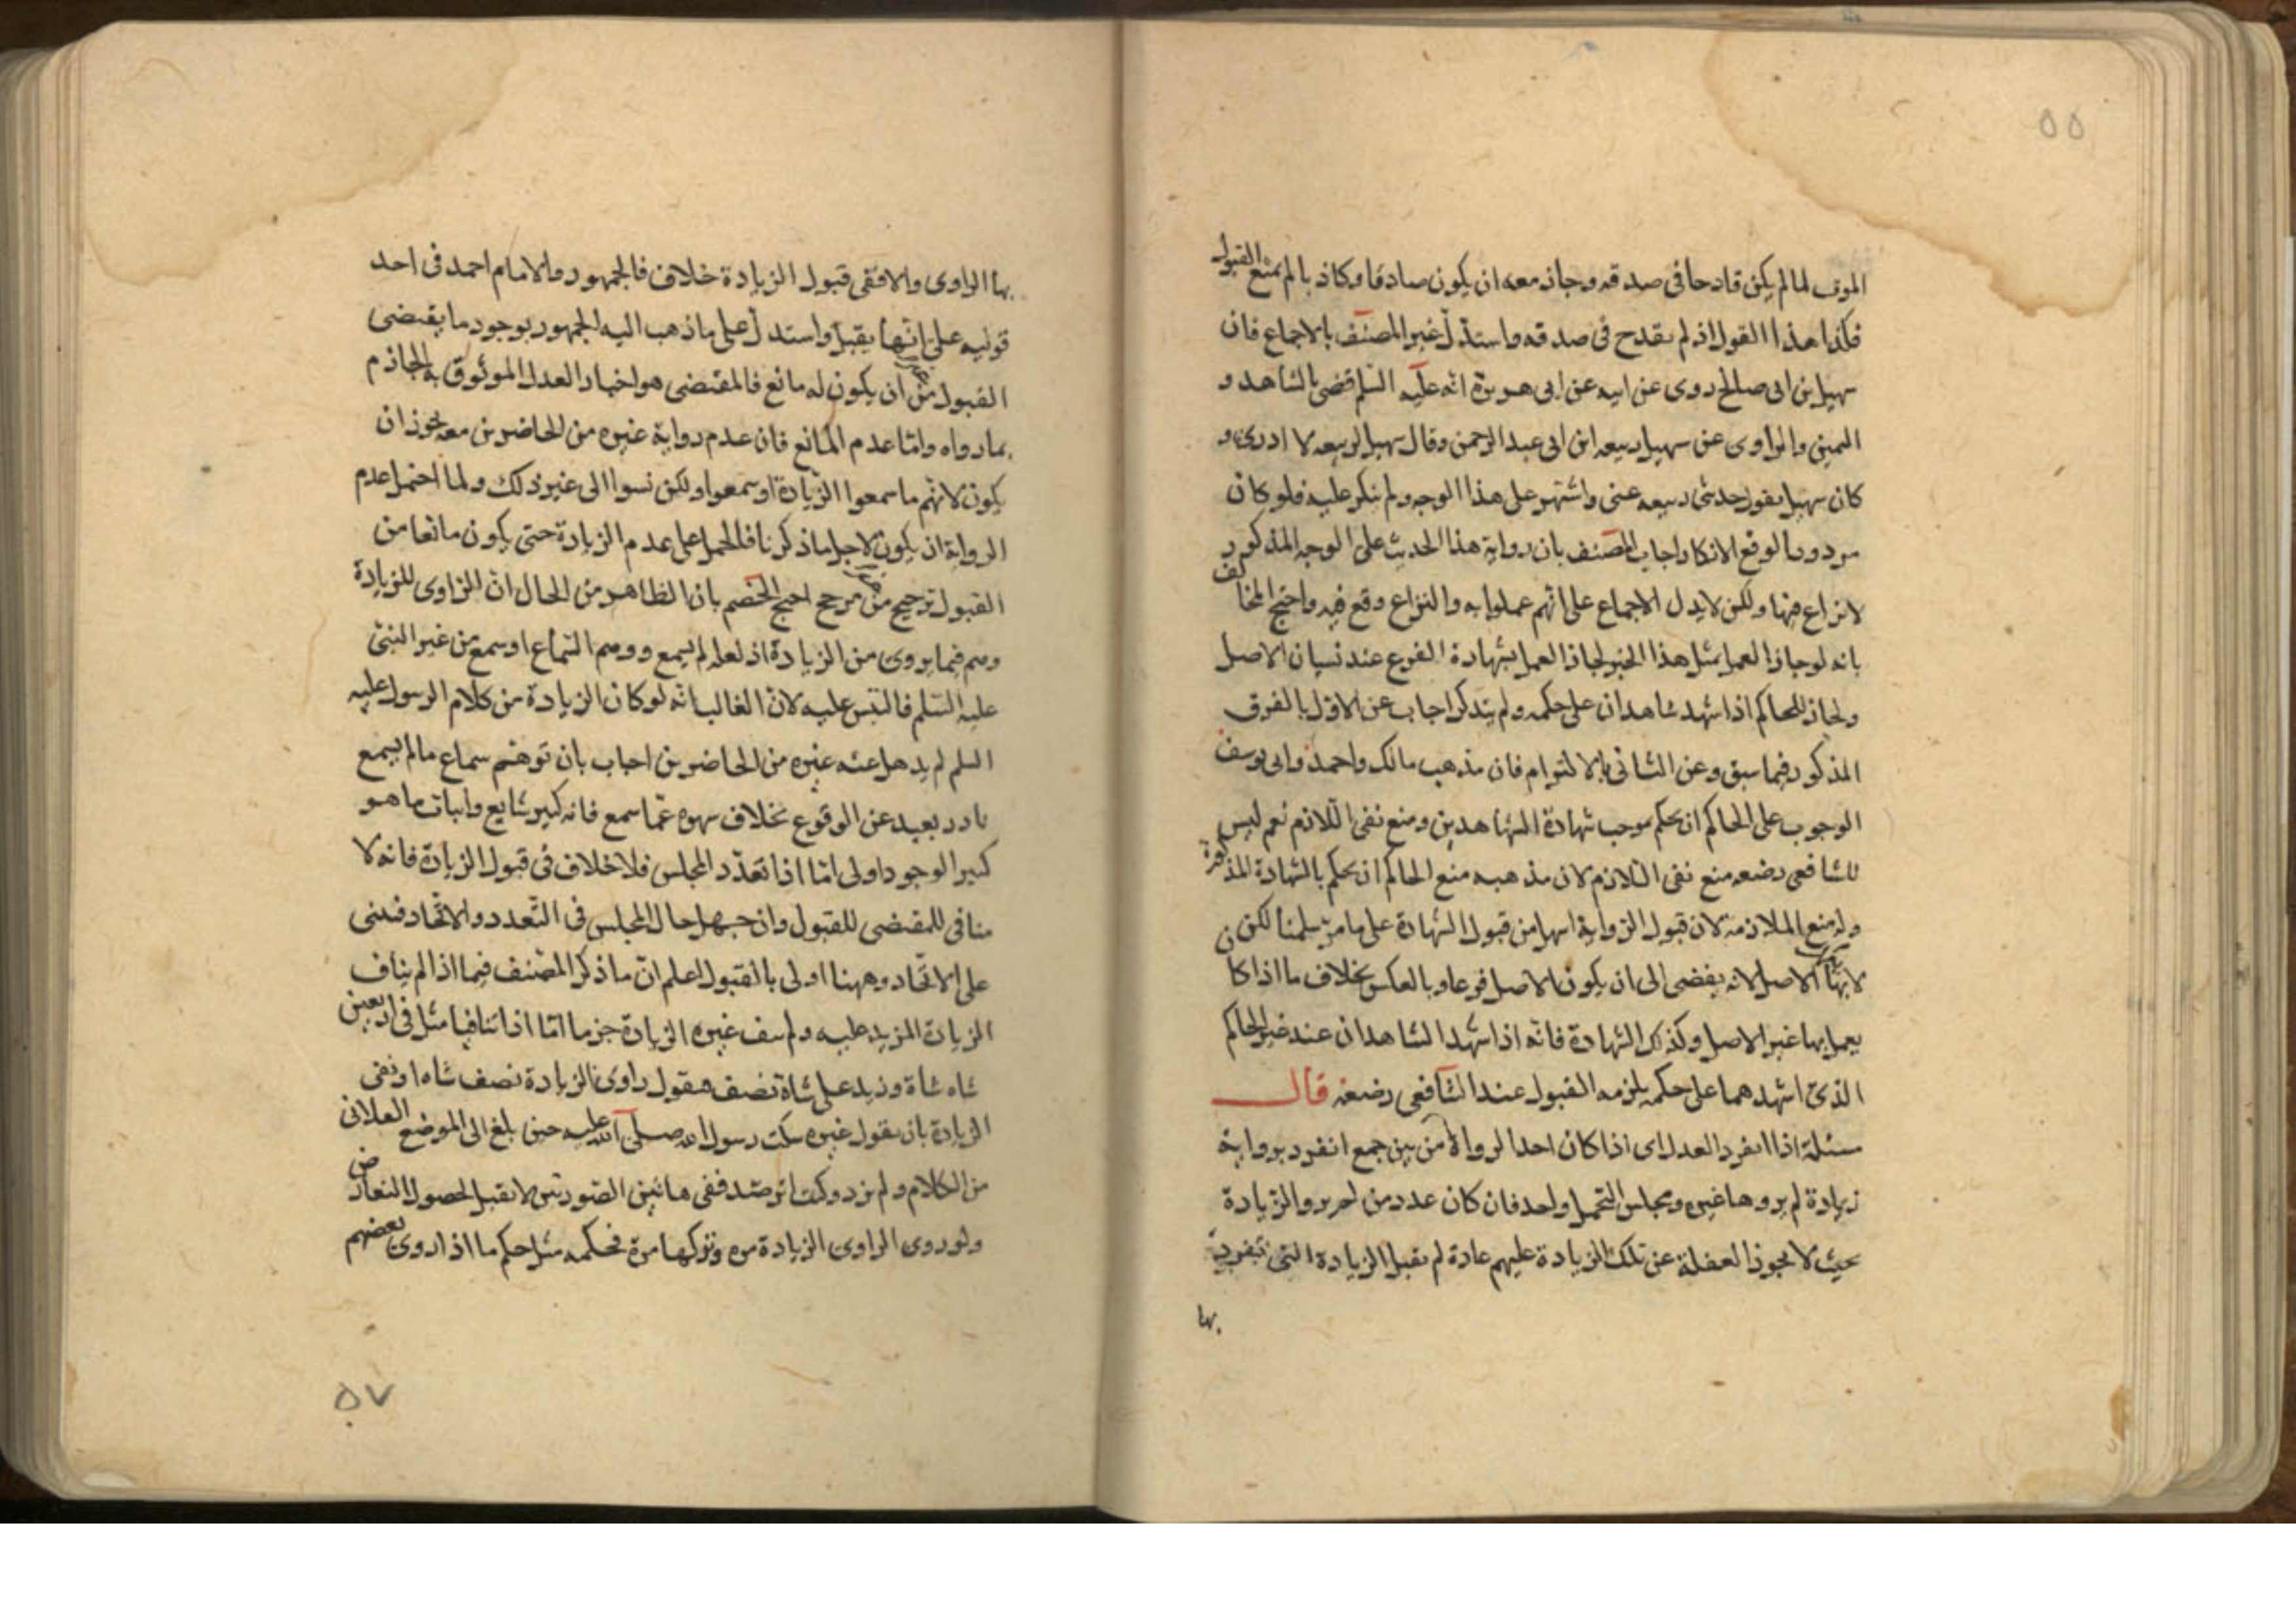 ٥٥
الموت لما لم يكن قادحا فى صدقه وجاز معه ان يكون صادقا وكاذبا لم يمنع القبول
فكذا هذا القول اذ لم يقدح فى صدقه واستدل غير المصنف بالاجماع فان
سهيل بن ابى صالح روى عن ابيه عن ابى هريرة انه عليه السلم قضى بالشاهد و
اليمين والراوى عن سهيل ربيعه ابن ابى عبد الرحمن وقال سهيل لربيعه لا ادرى و
كان سهيل يقول حدثنى ربيعه عنى واشتهر على هذا الوجه ولم ينكر عليه فلو كان
مردودا لوقع الانكار واجاب المصنف بان رواية هذا الحديث على الوجه المذكور
لا نزاع فيها ولكن لا يدل الاجماع على انهم عملوا به والنزاع وقع فيه واحتج المخالف
بانه لو جاز العمل بمثل هذا الخبر لجاز العمل بشهادة الفرع عند نسيان الاصل
ولجاز للحاكم اذا شهد شاهدان على حكمه ولم يتذكر اجاب عن الاول بالفرق
المذكور فيما سبق وعن الثانى بالالتزام فان مذهب مالك واحمد وابى يوسف
الوجوب على الحاكم ان يحكم بموجب شهادة الشاهدين ومنع نفى اللازم نعم ليس
للشافعى رضعه منع نفى اللازم لان مذهبه منع الحاكم ان يحكم بالشهادة المذكورة
وله منع الملازمة لان قبول الرواية اسهل من قبول الشهادة على ما مر سلمنا لكن
الاصل لانه يفضى الى ان يكون الاصل فرعا وبالعكس بخلاف ما اذا كان
يعمل بها غير الاصل وكذلك الشهادة فانه اذا شهد الشاهدان عند غير الحاكم
الذى اشهدهما على حكمه يلزمه القبول عند الشافعى رضعنه قال
مسئلة اذا انفرد العدل اى اذا كان احد الرواة من بين جمع انفرد برواية
زيادة لم يروها غيره ومجلس التحمل واحد فان كان عدد من لم يرو الزيادة
بحيث لا يجوز الغفلة عن تلك الزيادة عليهم عادة لم يقبل الزيادة التى تفرد
بها
بها الراوى والا ففى قبول الزيادة خلاف فالجمهور والامام احمد فى احد
قوليه على انها يقبل واستدل على ما ذهب اليه الجمهور بوجود ما يقتضى
القبول من غير ان يكون له مانع فالمقتضى هو اخبار العدل الموثوق به الجازم
بما رواه واما عدم المانع فان عدم رواية غيره من الحاضرين معه يجوز ان
يكون لانهم ما سمعوا الزيادة او سمعوا ولكن نسوا الى غير ذلك ولما احتمل عدم
الرواية ان يكون لاجل ما ذكرنا فالحمل على عدم الزيادة حتى يكون مانعا من
القبول ترجيح من غير مرجح احتج الخصم بان الظاهر من الحال ان الراوى للزيادة
وهم فيما يروى من الزيادة اذ لعله لم يسمع ووهم السماع او سمع من غير النبى
عليه السلم فالتبس عليه لان الغالب انه لو كان الزيادة من كلام الرسول عليه
السلم لم يذهل عنه غيره من الحاضرين اجاب بان توهم سماع ما لم يسمع
نادر بعيد عن الوقوع بخلاف سهوه عما سمع فانه كثير شايع واثبات ما هو
كثير الوجود اولى اما اذا تعدد المجلس فلا خلاف فى قبول الزيادة فانه لا
منافى للمقتضى للقبول وان جهل حال المجلس فى التعدد والاتحاد فبنى
على الاتحاد وههنا اولى بالقبول اعلم ان ما ذكر المصنف فيما اذا لم يناف
الزيادة المزيد عليه ولم ينف غيره الزيادة جزما اما اذا تنافيا مثل فى اربعين
شاه شاة وزيد على شاة نصف فيقول راوى الزيادة نصف شاه او نفى
الزيادة بان يقول غيره سكت رسول الله صلى الله عليه حين بلغ الى الموضع الفلانى
من الكلام ولم يزد وكنت اترصد ففى هاتين الصورتين لا تقبل لحصول التعارض
ولو روى الراوى الزيادة مرة وتركها مرة فحكمه مثل حكم ما اذا روى بعضهم
٥٧